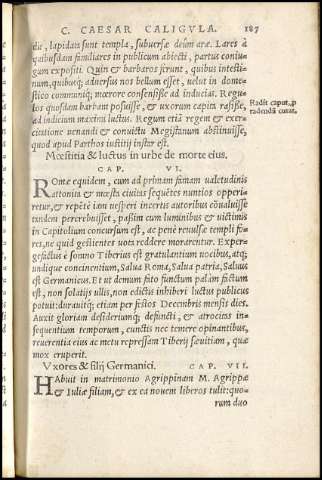 C. CAESAR CALIGVLA. 187
est, lapidata sunt templa, subuersæ deûm aræ. Lares à
quibusdam familiares in publicum abiecti, partus coniu-
gum expositi. Quin & barbaros ferunt, quibus intesti-
num, quibusq; aduersus nos bellum esset, uelut in dome-
stico communiq; mœrore consensisse ad inducias. Regu-
los quosdam barbam posuisse, & uxorum capita rasisse,
ad indicium maximi luctus. Regum etiã regem & exer-
citatione uenandi & conuictu Megistanum abstinuisse,
quod apud Parthos iustitij instar est.
Radit caput, p
radendũ curat.
Mœstitia & luctus in urbe de morte eius.
CAP. VI.
Romæ equidem, cum ad primam famam ualetudinis
attonita & mœsta ciuitas sequêtes nuntios opperi-
retur, & repẽte iam uesperi incertis autoribus cõualuisse
tandem percrebuisset, passim cum luminibus & uictimis
in Capitolium concursum est, ac penè reuulsæ templi fo-
res, ne quid gestientes uota reddere morarentur. Exper-
gefactus è somno Tiberius est gratulantium uocibus, atq;
undique concinentium, Salua Roma, Salua patria, Saluus
est Germanicus. Et ut demum fato functum palàm factum
est, non solatijs ullis, non edictis inhiberi luctus publicus
potuit: durauitq; etiam per festos Decembris mensis dies.
Auxit gloriam desideriumq; defuncti, & atrocitas in-
sequentium temporum, cunctis nec temere opinantibus,
reuerentia eius ac metu repressam Tiberij sæuitiam, quæ
mox eruperit.
Vxores & filij Germanici. CAP. VII.
Habuit in matrimonio Agrippinam M. Agrippæ
& Iuliæ filiam, & ex ea nouem liberos tulit: quo-
rum duo